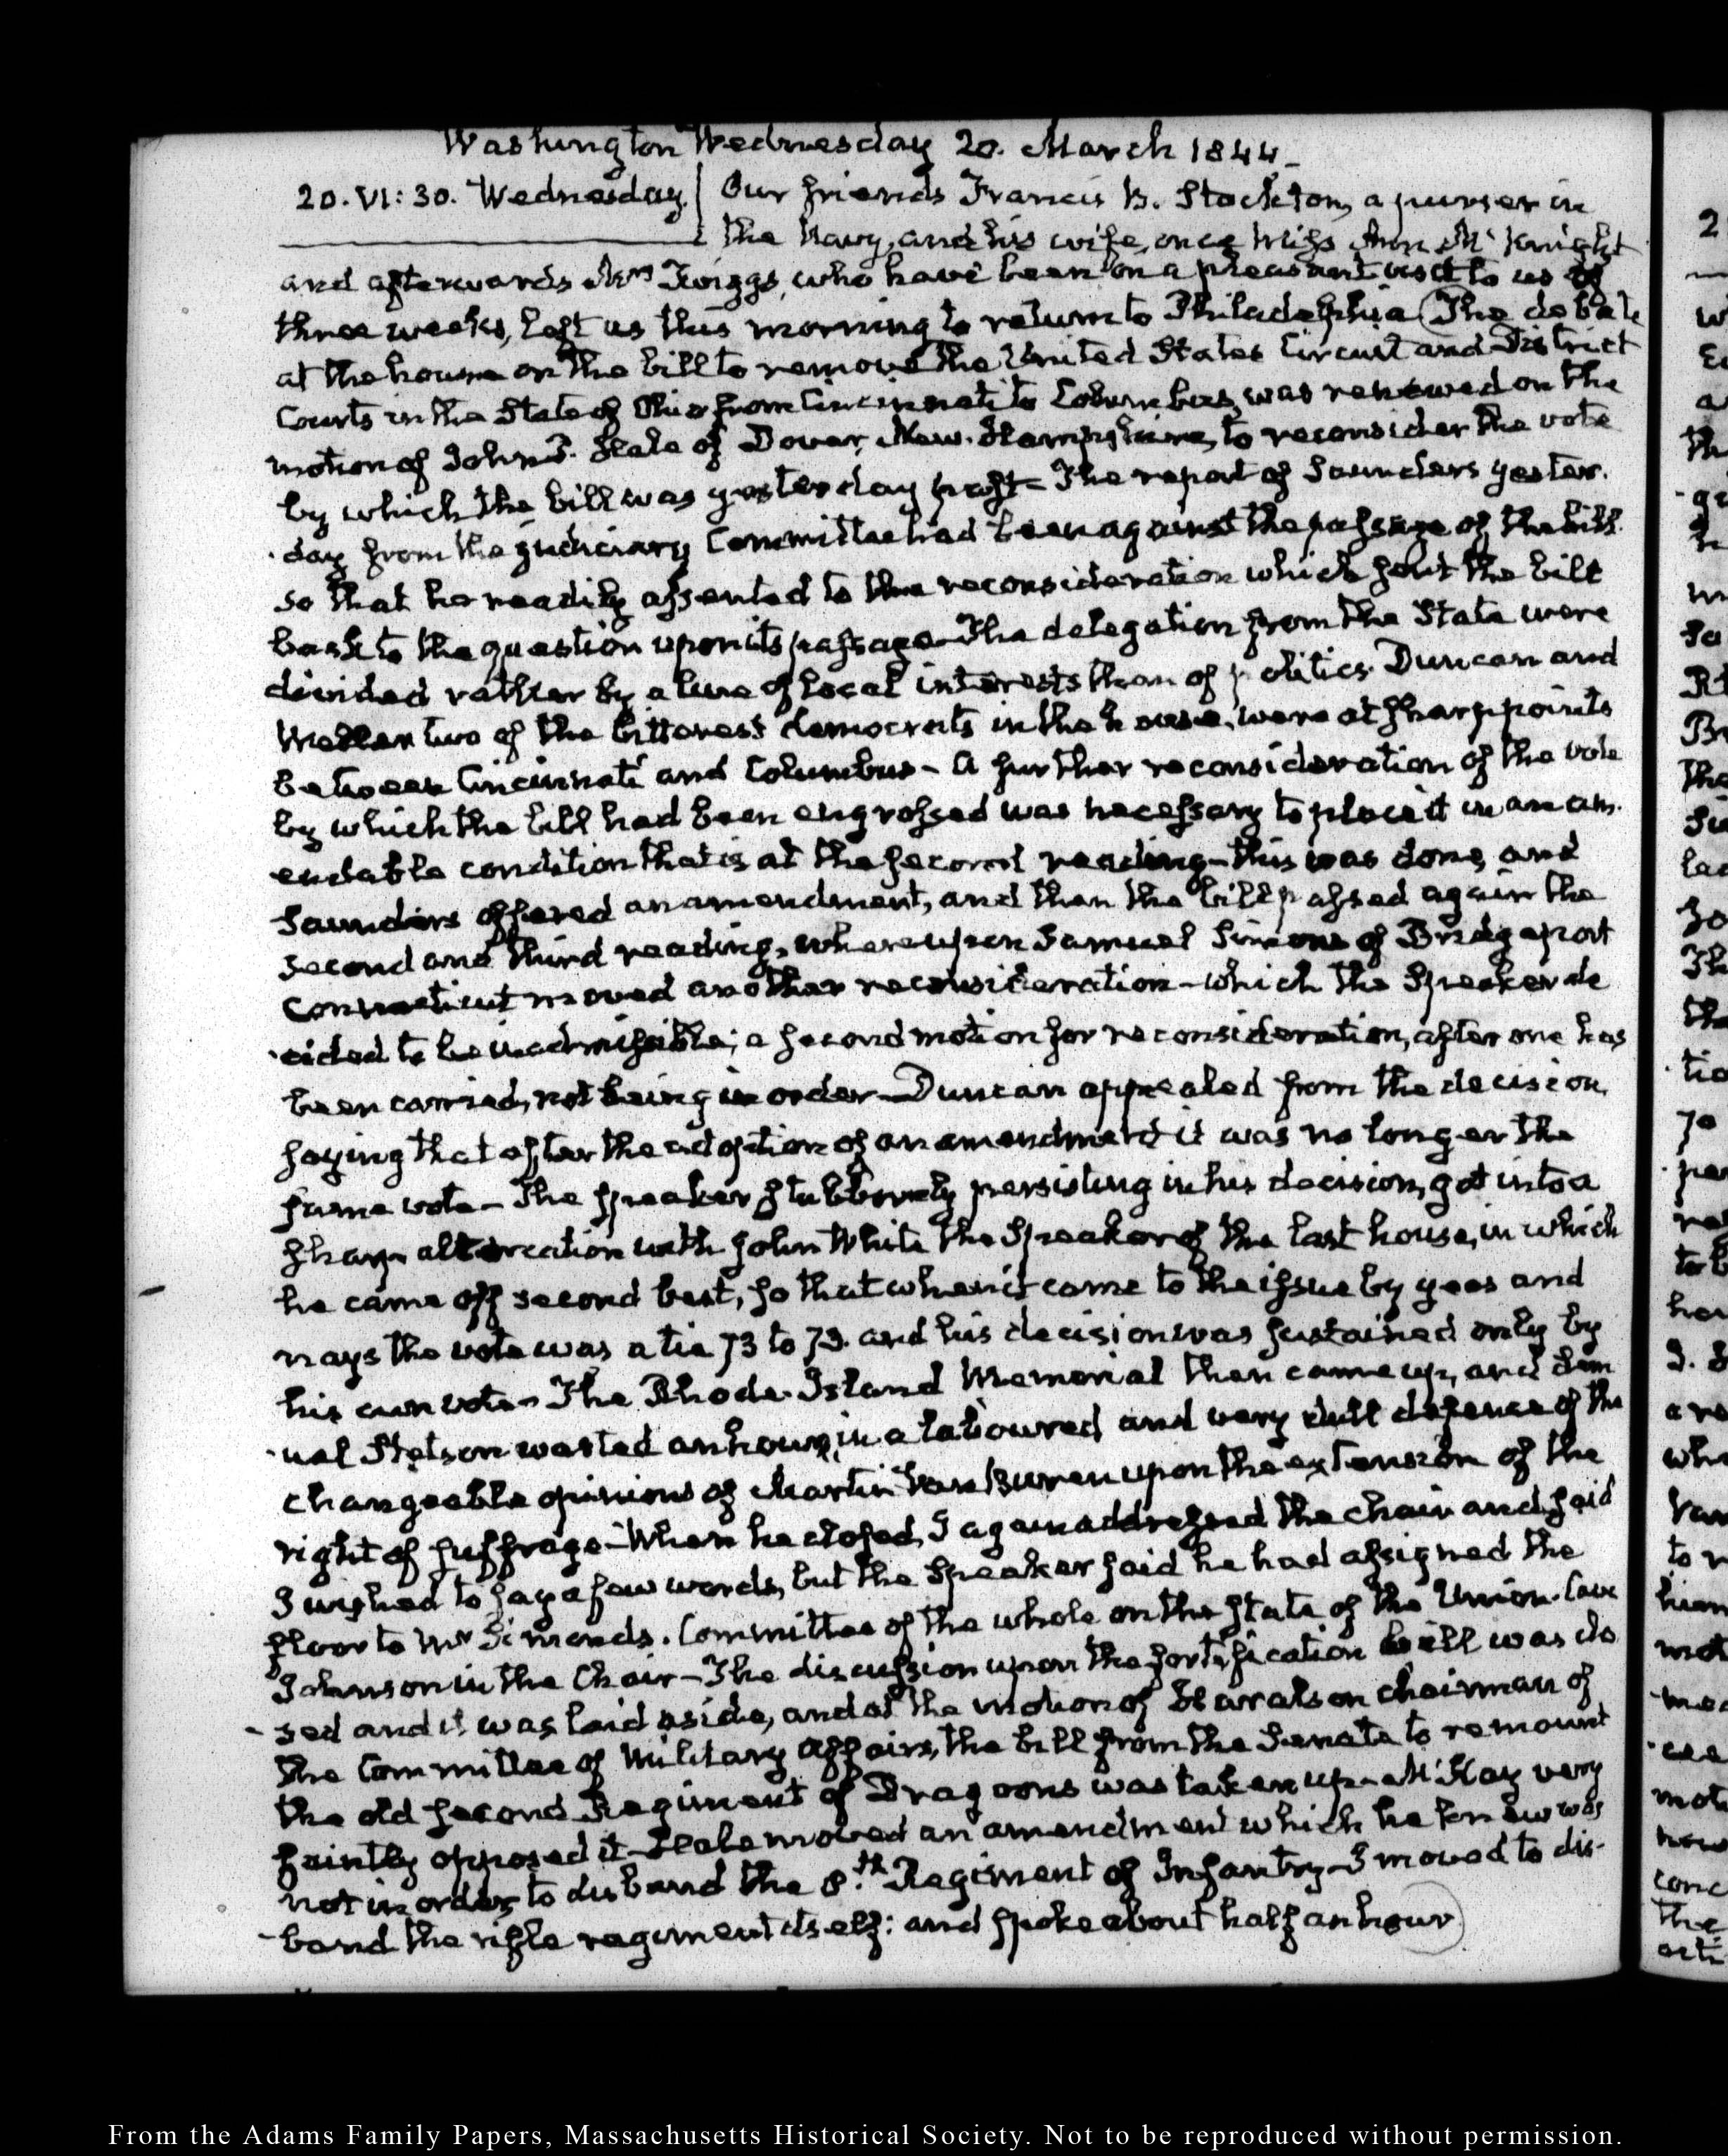 Washington Wednesday 20. March 1844.
20. VI: 30. Wednesday. Our friends Francis B. Stockton, a purser in
the Navy, and his wife, once Miss Ann McKnight
and afterwards Mrs Twiggs, who have been on a pleasant visit to us of
three weeks, left us this morning to return to Philadelphia The debate
at the house on the bill to remove the United States Circuit and District
Courts in the State of Ohio from Cincinnati to Columbus, was renewed on the
motion of John P. Hale of Dover, New-Hampshire, to reconsider the vote
by which the bill was yesterday past - The report of Saunders yester-
day from the judiciary Committee had been against the passage of the bill
so that he readily assented to the reconsideration which sent the bill
back to the question upon its passage - The delegation from the State were
divided rather by a line of local interests than of politics. Duncan and
Weller two of the bitterest democrats in the house, were at sharp points
between Cincinnati and Columbus - A further reconsideration of the vote
by which the bill had been engrossed was necessary to place it in an am-
endable condition that is at the second reading - this was done, and
Saunders offered an amendment, and then the bill passed again the
second and third reading, whereupon Samuel Simons of Bridgeport
Connecticut moved another reconsideration - which the Speaker de
cided to be inadmissible; a second motion for reconsideration, after one has
been carried, not being in order - Duncan appealed from the decision,
saying that after the adoption of an amendment it was no longer the
same vote - The Speaker stubbornly persisting in his decision, got into a
sharp altercation with John White the Speaker of the last house, in which
he came off second best, so that when it came to the issue by yeas and
nays the vote was a tie 73 to 73. and his decision was sustained only by
his own vote - The Rhode-Island Memorial then came up, and Lem
uel Stetson wasted an hour, in a laboured and very dull defence of the
changeable opinions of Martin Van Buren upon the extension of the
right of suffrage - When he closed, I again addressed the chair and said
I wished to say a few words, but the Speaker said he had assigned the
floor to Mr Simonds. Committee of the whole on the state of the Union. Cave
Johnson in the Chair - The discussion upon the fortification bill was clo
sed and it was laid aside, and at the motion of Haralson chairman of
the Committee of Military affairs, the bill from the Senate to remount
the old second Regiment of Dragoons was taken up - McKay very
faintly opposed it - Hale moved an amendment which he knew was
not in order, to disband the 8.th Regiment of Infantry - I moved to dis-
band the rifle regiment itself: and spoke about half an hour
From the Adams Family Papers, Massachusetts Historical Society. Not to be reproduced without permission.